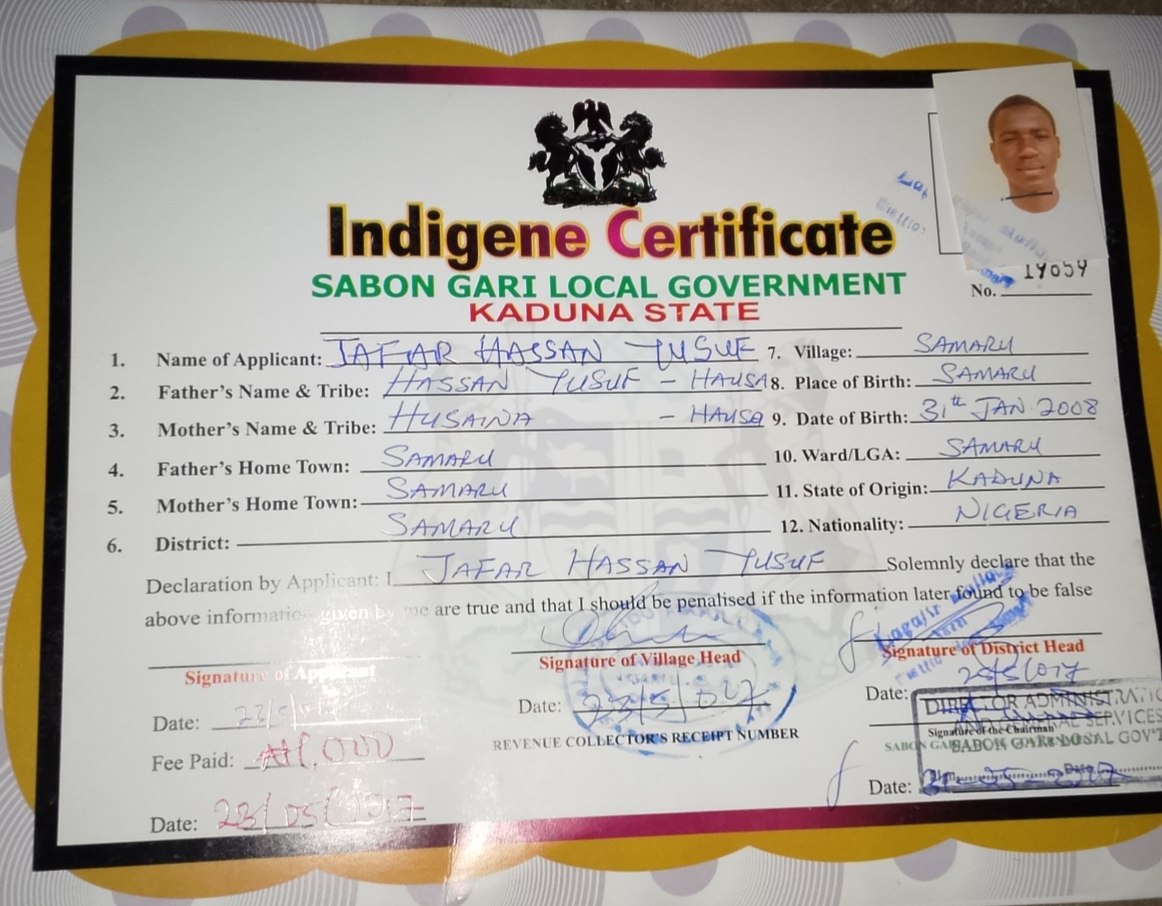 Indigene Certificate
SABON GARI LOCAL GOVERNMENT
KADUNA STATE
No. 19659
1. Name of Applicant: JAFAR HASSAN YUSUF
2. Father's Name & Tribe: HASSAN YUSUF - HAUSA
3. Mother's Name & Tribe: HUSAINA - HAUSA
4. Father's Home Town: SAMARU
5. Mother's Home Town: SAMARU
6. District: SAMARU
7. Village: SAMARU
8. Place of Birth: SAMARU
9. Date of Birth: 31th JAN 2008
10. Ward/LGA: SAMARU
11. State of Origin: KADUNA
12. Nationality: NIGERIA
Declaration by Applicant: I JAFAR HASSAN YUSUF Solemnly declare that the
above information given by me are true and that I should be penalised if the information later found to be false
Signature of Applicant
Signature of Village Head
Signature of District Head
Date:
Date:
Date:
Fee Paid: ₦1,000
REVENUE COLLECTOR'S RECEIPT NUMBER
DIRECTOR ADMINISTRATIO
AND GENERAL SERVICES
Signature of the Chairman
SABON GARI LOCAL GOV'T
Date:
Date: